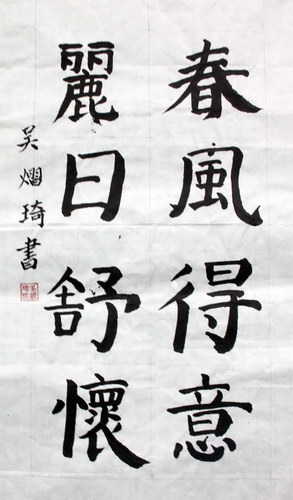 春風得意
麗日舒懷
吴熠琦書